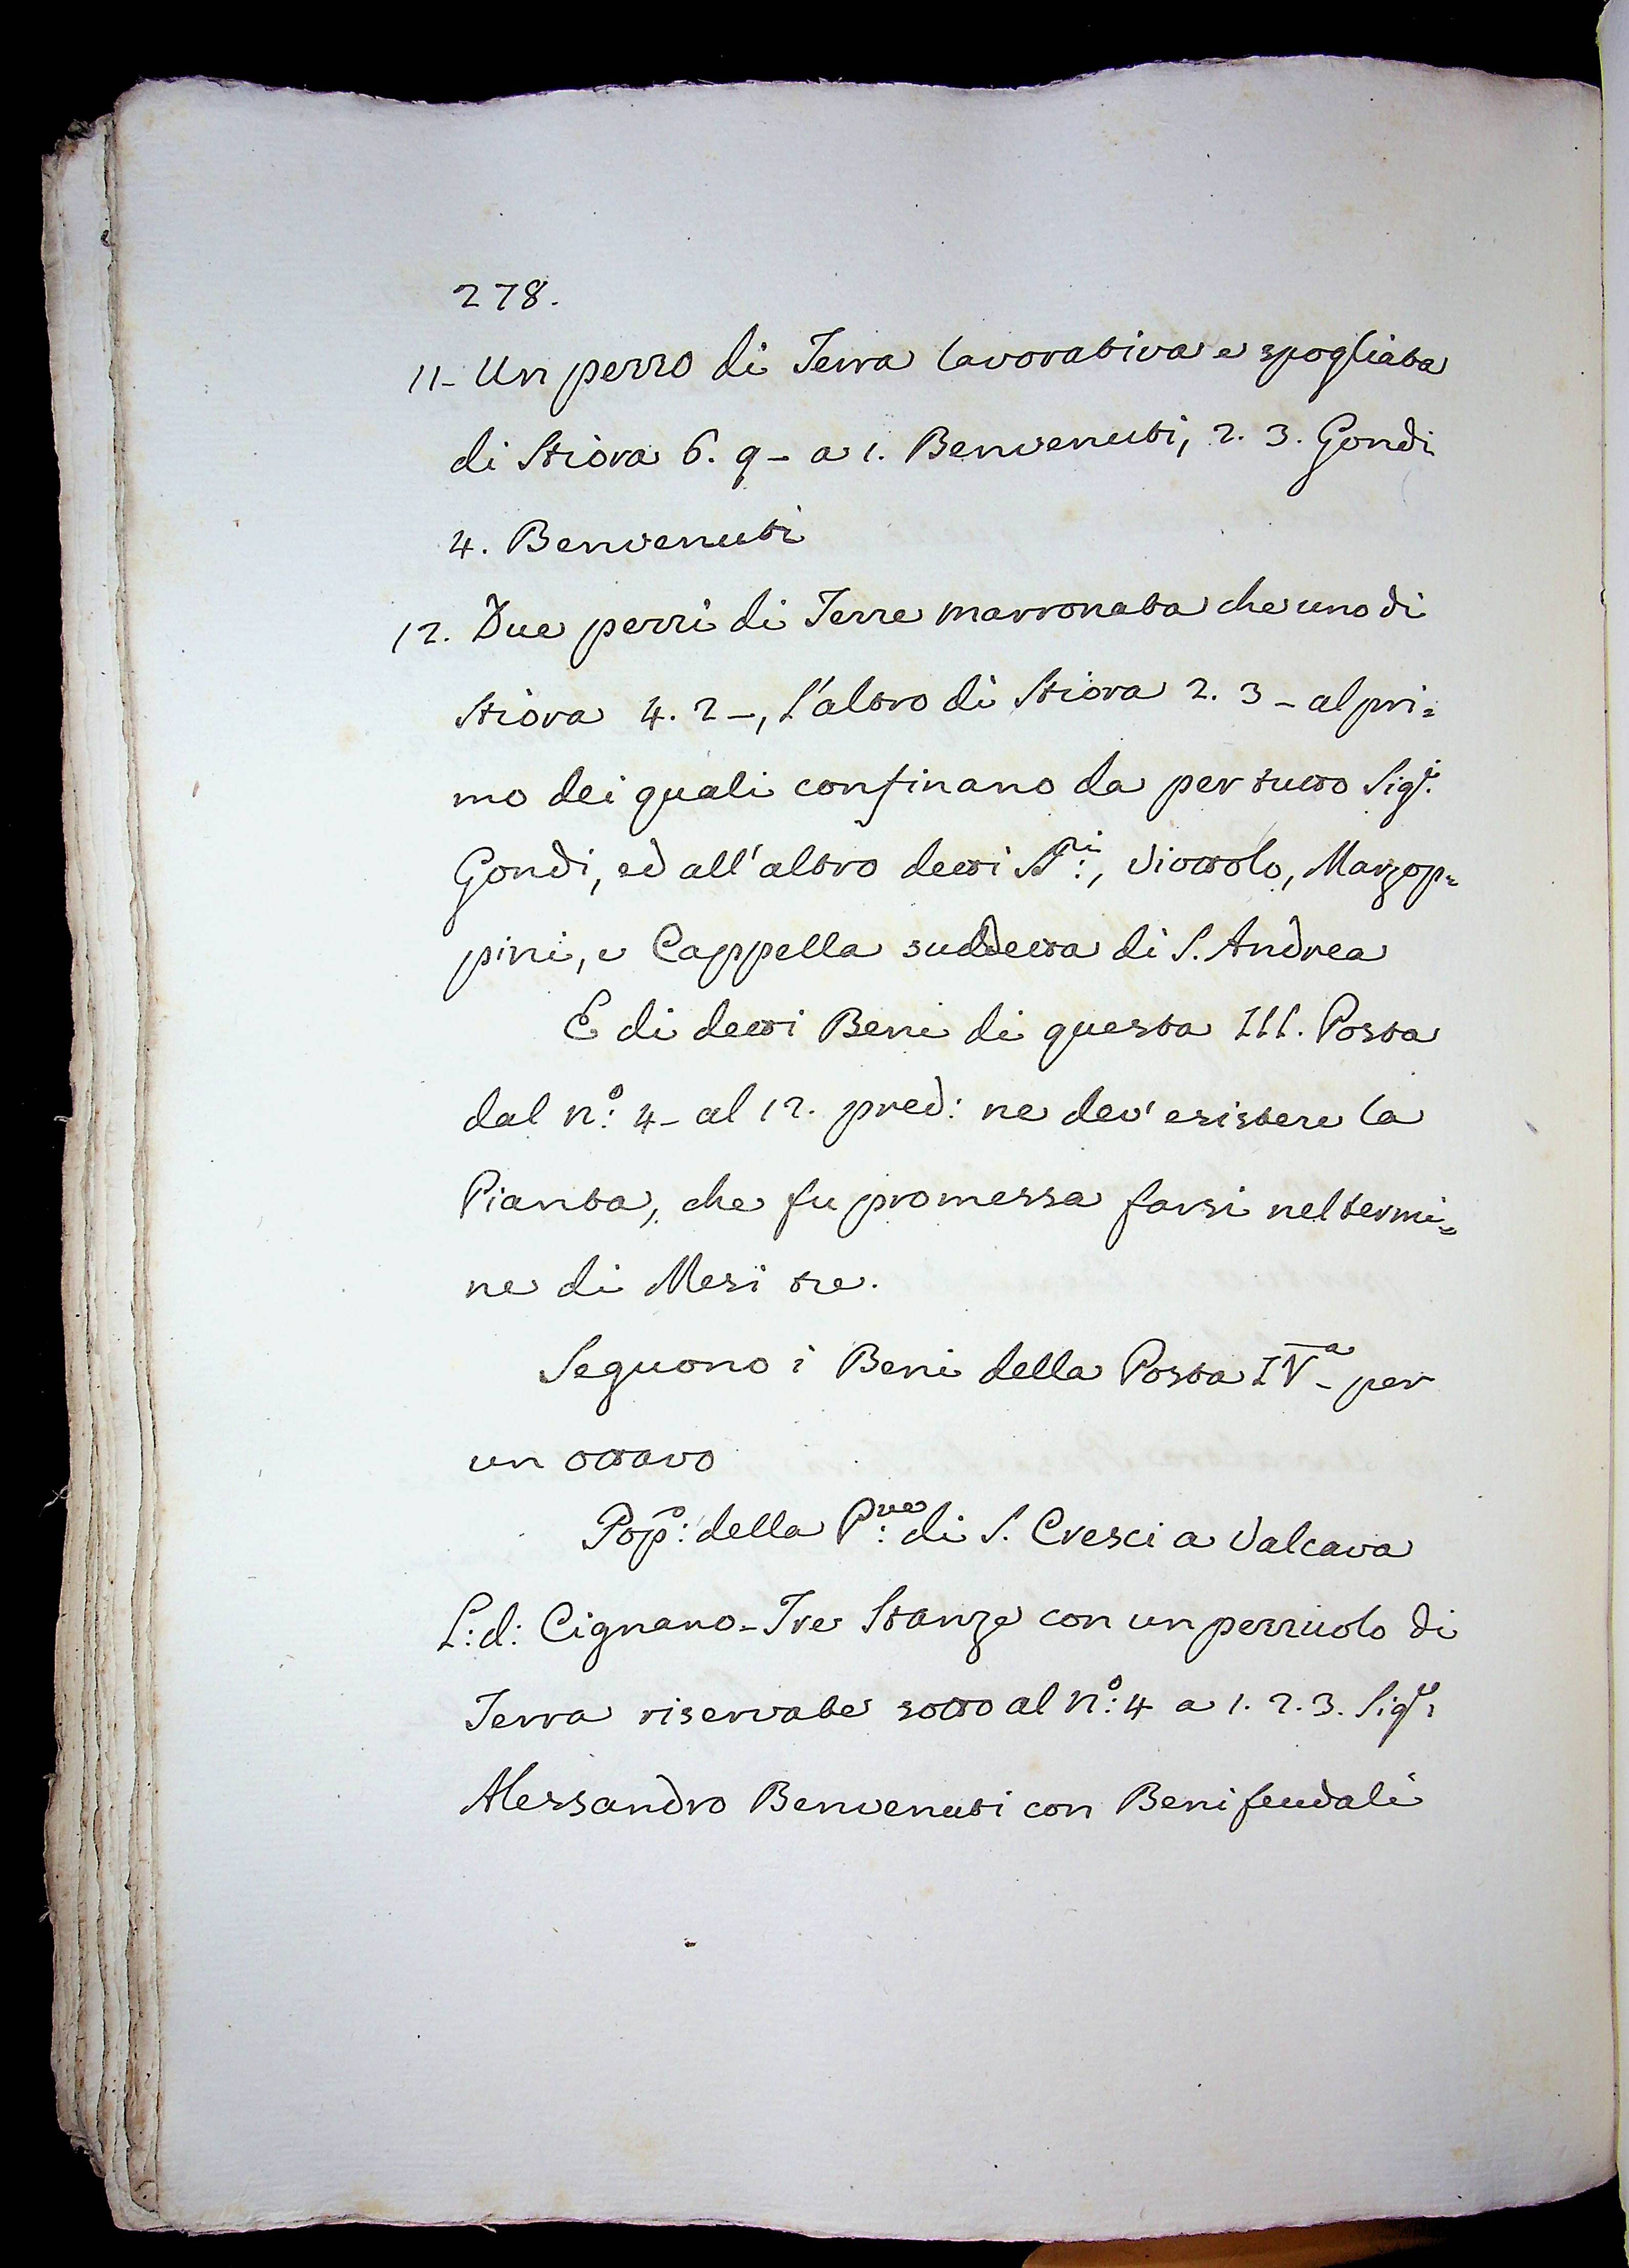 278.
11- Un pezzo di Terra lavorativa e spogliata
di Stiora 6. 9 - a 1. Benvenuti, 2. 3. Gondi
4. Benvenuti
12. Due pezzi di Terre marronata che uno di
Stiora 4. 2 -, l'altro di Stiora 2. 3 - al pri=
mo dei quali confinano da per tutto Sig.ri
Gondi, ed all'altro detti SS.ri:, Viottolo, Marzop=
pini, e Cappella suddetta di S. Andrea
E di detti Beni di questa III. Posta
dal N.o: 4 - al 12. pred: ne dev'esistere la
Pianta, che fu promessa farsi nel termi=
ne di Mesi tre.
Seguono i Beni della Posta IV.a - per
un ottavo
Pop.o: della P.ve: di S. Cresci a Valcava
L: d: Cignano - Tre Stanze con un pezzuolo di
Terra riservate sotto al N.o: 4 a 1. 2. 3. Sig.r:
Alessandro Benvenuti con Beni feudali